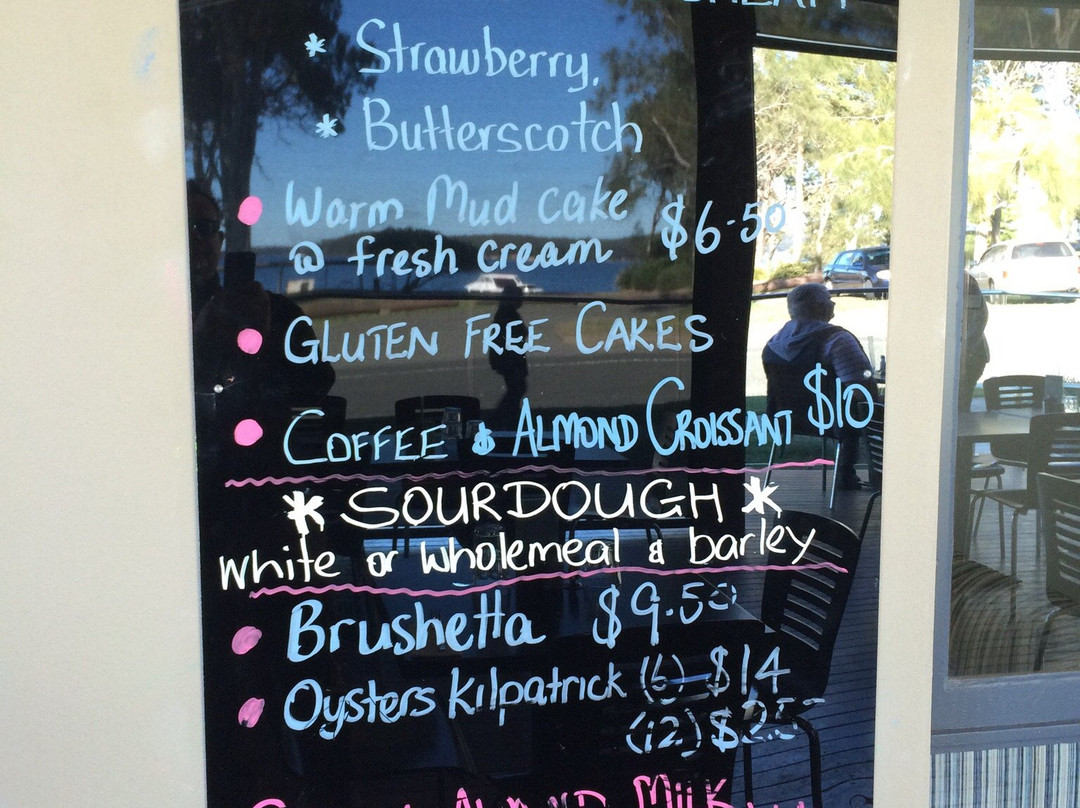 CREAM
* Strawberry,
* Butterscotch
• Warm Mud cake
@ fresh cream $6-50
• GLUTEN FREE CAKES
• COFFEE & ALMOND CROISSANT $10
* SOURDOUGH *
White or Wholemeal & barley
• Brushetta $9.50
• Oysters Kilpatrick (6) $14
(12) $25
ALMOND MILK